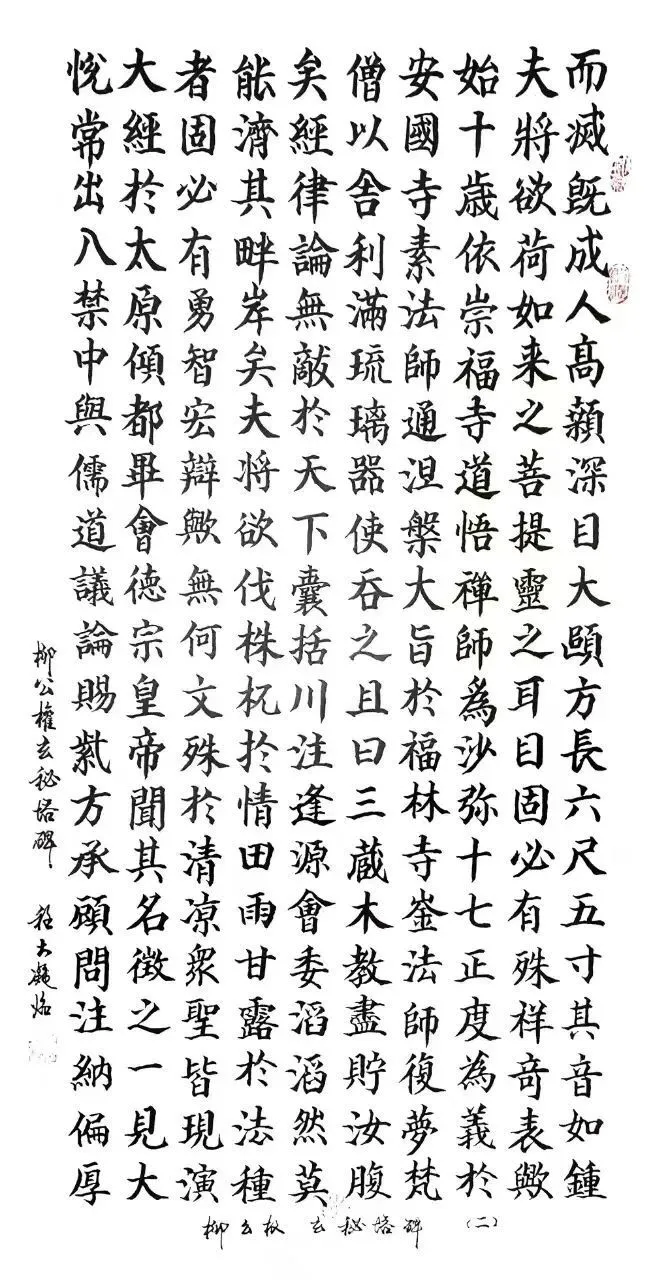 而滅既成人高顙深目大頤方長六尺五寸其音如鍾
夫將欲荷如来之菩提靈之耳目固必有殊祥竒表歟
始十歳依崇福寺道悟禪師爲沙弥十七正度為義於
安國寺素法師通涅槃大旨於福林寺崟法師復夢梵
僧以舍利滿琉璃器使吞之且曰三蔵木教盡貯汝腹
矣經律論無敵於天下囊括川注逢源會委滔滔然莫
能濟其畔岸矣夫将欲伐株杌扵情田雨甘露扵法種
者固必有勇智宏辯歟無何文殊於清凉衆聖皆現演
大經扵太原傾都畢會德宗皇帝聞其名徴之一見大
悦常出八禁中與儒道議論賜紫方承顧問注納偏厚
柳公權玄秘塔碑
柳公权 玄秘塔碑 （二）